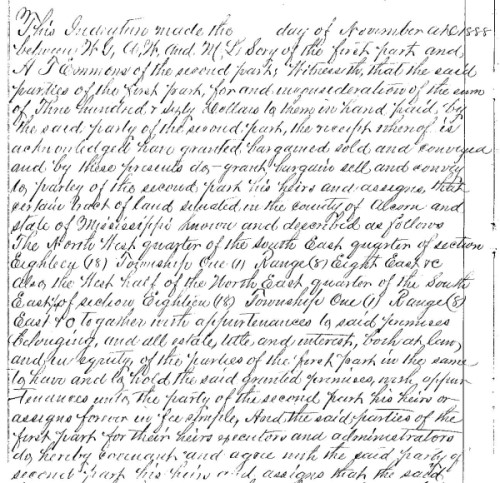 This Indenture made the day of November AD 1888
between W G, A, W, and M, L, Sory of the first part and
A T Emmons of the second part, Witnesseth, that the said
parties of the first part, for and in consideration of the sum
of Three hundred & Sixty Dollars to them in hand paid, by
the said party of the second part, the receipt whereof is
acknowledged have granted bargained sold and conveyed
and by these presents do, grant, bargain sell and convey
to party of the second part his heirs and assigns, that
certain tract of land situated in the county of Alcorn and
state of Mississippi known and described as follows
The North West quarter of the South East quarter of section
Eighteen (18) Township One (1) Range (8) Eight East &c
Also the West half of the North East, quarter of the South
East of section Eighteen (18) Township One (1) Range (8)
East &c together with appurtenances to said premises
belonging, and all estate, title, and interest, both at law,
and in equity, of the parties of the first part in the same
to have and to hold the said granted premises, with appur
tenances unto the party of the second part his heirs or
assigns forever in fee simple, And the said parties of the
first part for their heirs executors and administrators
do hereby covenant and agree with the said party of
second part his heirs and assigns that the said